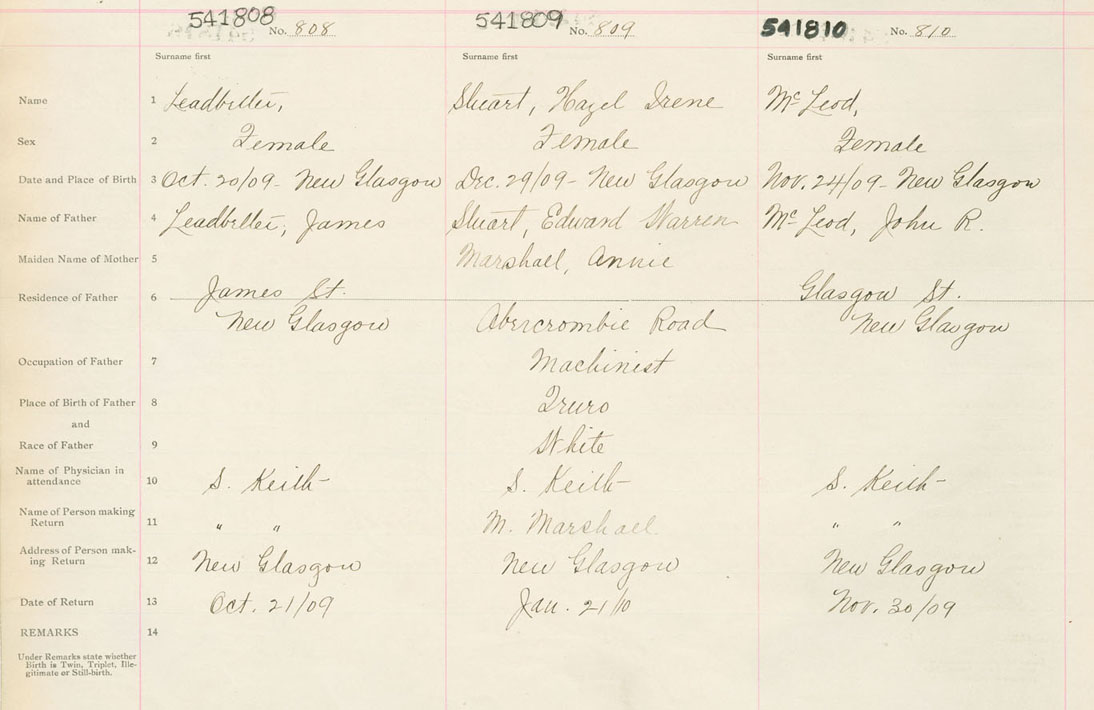 541808 No. 808 541809 No. 809 541810 No. 810
Surname first Surname first Surname first
Name 1 Leadbetter, Stuart, Hazel Irene McLeod,
Sex 2 Female Female Female
Date and Place of Birth 3 Oct. 20/09 - New Glasgow Dec. 29/09 - New Glasgow Nov. 24/09 - New Glasgow
Name of Father 4 Leadbetter, James Stuart, Edward Warren McLeod, John R.
Maiden Name of Mother 5 Marshall, Annie
Residence of Father 6 James St. Glasgow St.
New Glasgow Abercrombie Road New Glasgow
Occupation of Father 7 Machinist
Place of Birth of Father 8 Truro
and
Race of Father 9 White
Name of Physician in
attendance 10 S. Keith S. Keith S. Keith
Name of Person making
Return 11 " " M. Marshall " "
Address of Person mak-
ing Return 12 New Glasgow New Glasgow New Glasgow
Date of Return 13 Oct. 21/09 Jan. 21/10 Nov. 30/09
REMARKS 14
Under Remarks state whether
Birth is Twin, Triplet, Ille-
gitimate or Still-birth.